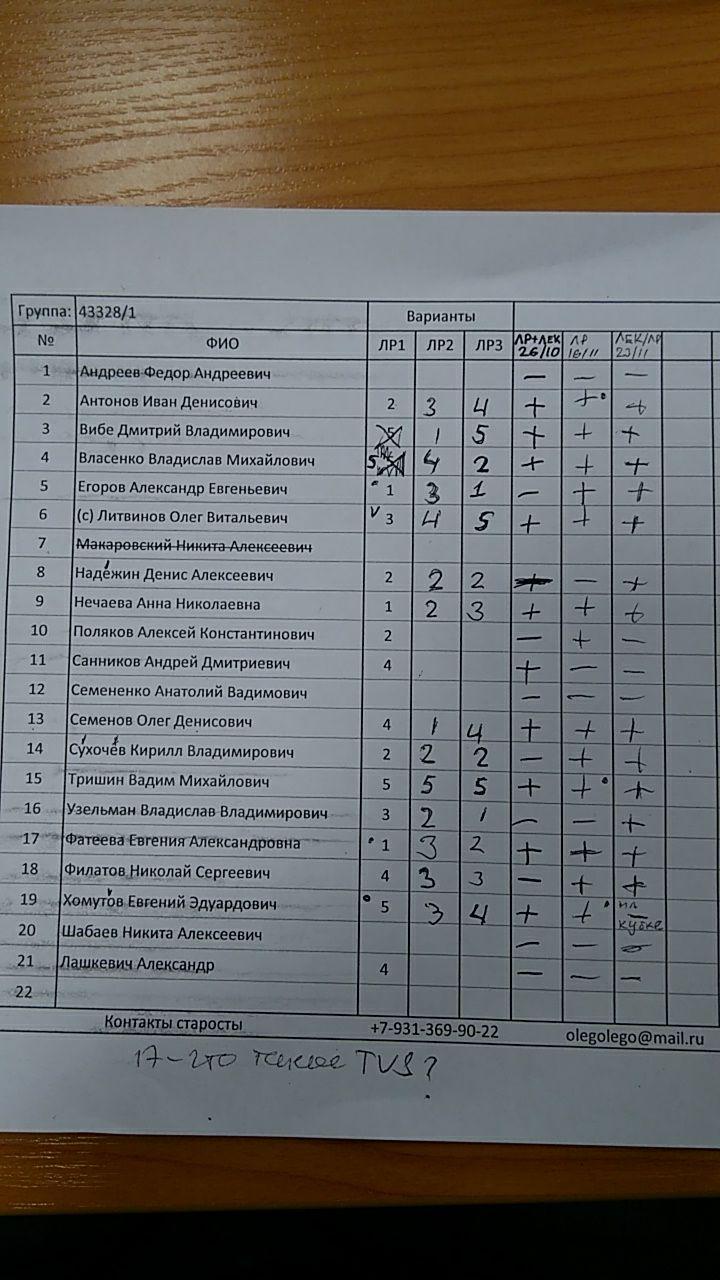 Группа: 43328/1 Варианты
№ ФИО ЛР1 ЛР2 ЛР3 ЛР+ЛЕК 26/10 ЛР 16/11 ЛЕК/ЛР 23/11
1 Андреев Федор Андреевич — — —
2 Антонов Иван Денисович 2 3 4 + + +
3 Вибе Дмитрий Владимирович 1 5 + + +
4 Власенко Владислав Михайлович 5 4 2 + + +
5 Егоров Александр Евгеньевич 1 3 1 — + +
6 (с) Литвинов Олег Витальевич V 3 4 5 + + +
7 Макаровский Никита Алексеевич
8 Надежин Денис Алексеевич 2 2 2 + — +
9 Нечаева Анна Николаевна 1 2 3 + + +
10 Поляков Алексей Константинович 2 — + —
11 Санников Андрей Дмитриевич 4 + — —
12 Семененко Анатолий Вадимович — — —
13 Семенов Олег Денисович 4 1 4 + + +
14 Сухочёв Кирилл Владимирович 2 2 2 — + +
15 Тришин Вадим Михайлович 5 5 5 + + +
16 Узельман Владислав Владимирович 3 2 1 — — +
17 Фатеева Евгения Александровна 1 3 2 + + +
18 Филатов Николай Сергеевич 4 3 3 — + +
19 Хомутов Евгений Эдуардович 5 3 4 + + —
20 Шабаев Никита Алексеевич — — —
21 Лашкевич Александр 4 — — —
22
Контакты старосты +7-931-369-90-22 olegolego@mail.ru
17 – что такое TVS?